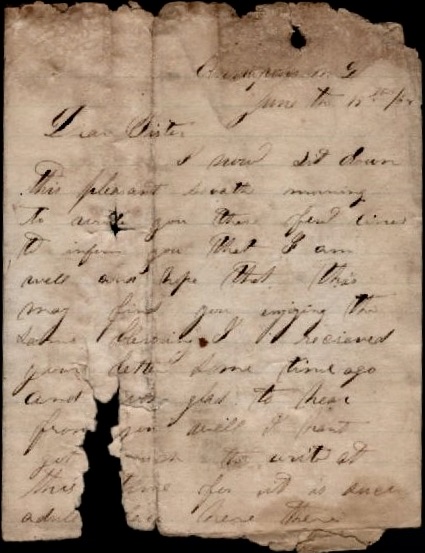 June the 15th
Dear Sister
I now set down
this pleasant south morning
to write you these few lines
to inform you that I am
well and hope that this
may find you injoying the
same blessing I recieved
your letter some time ago
and was glad to hear
from you well I hant
got much to write at
this time for it is
here there